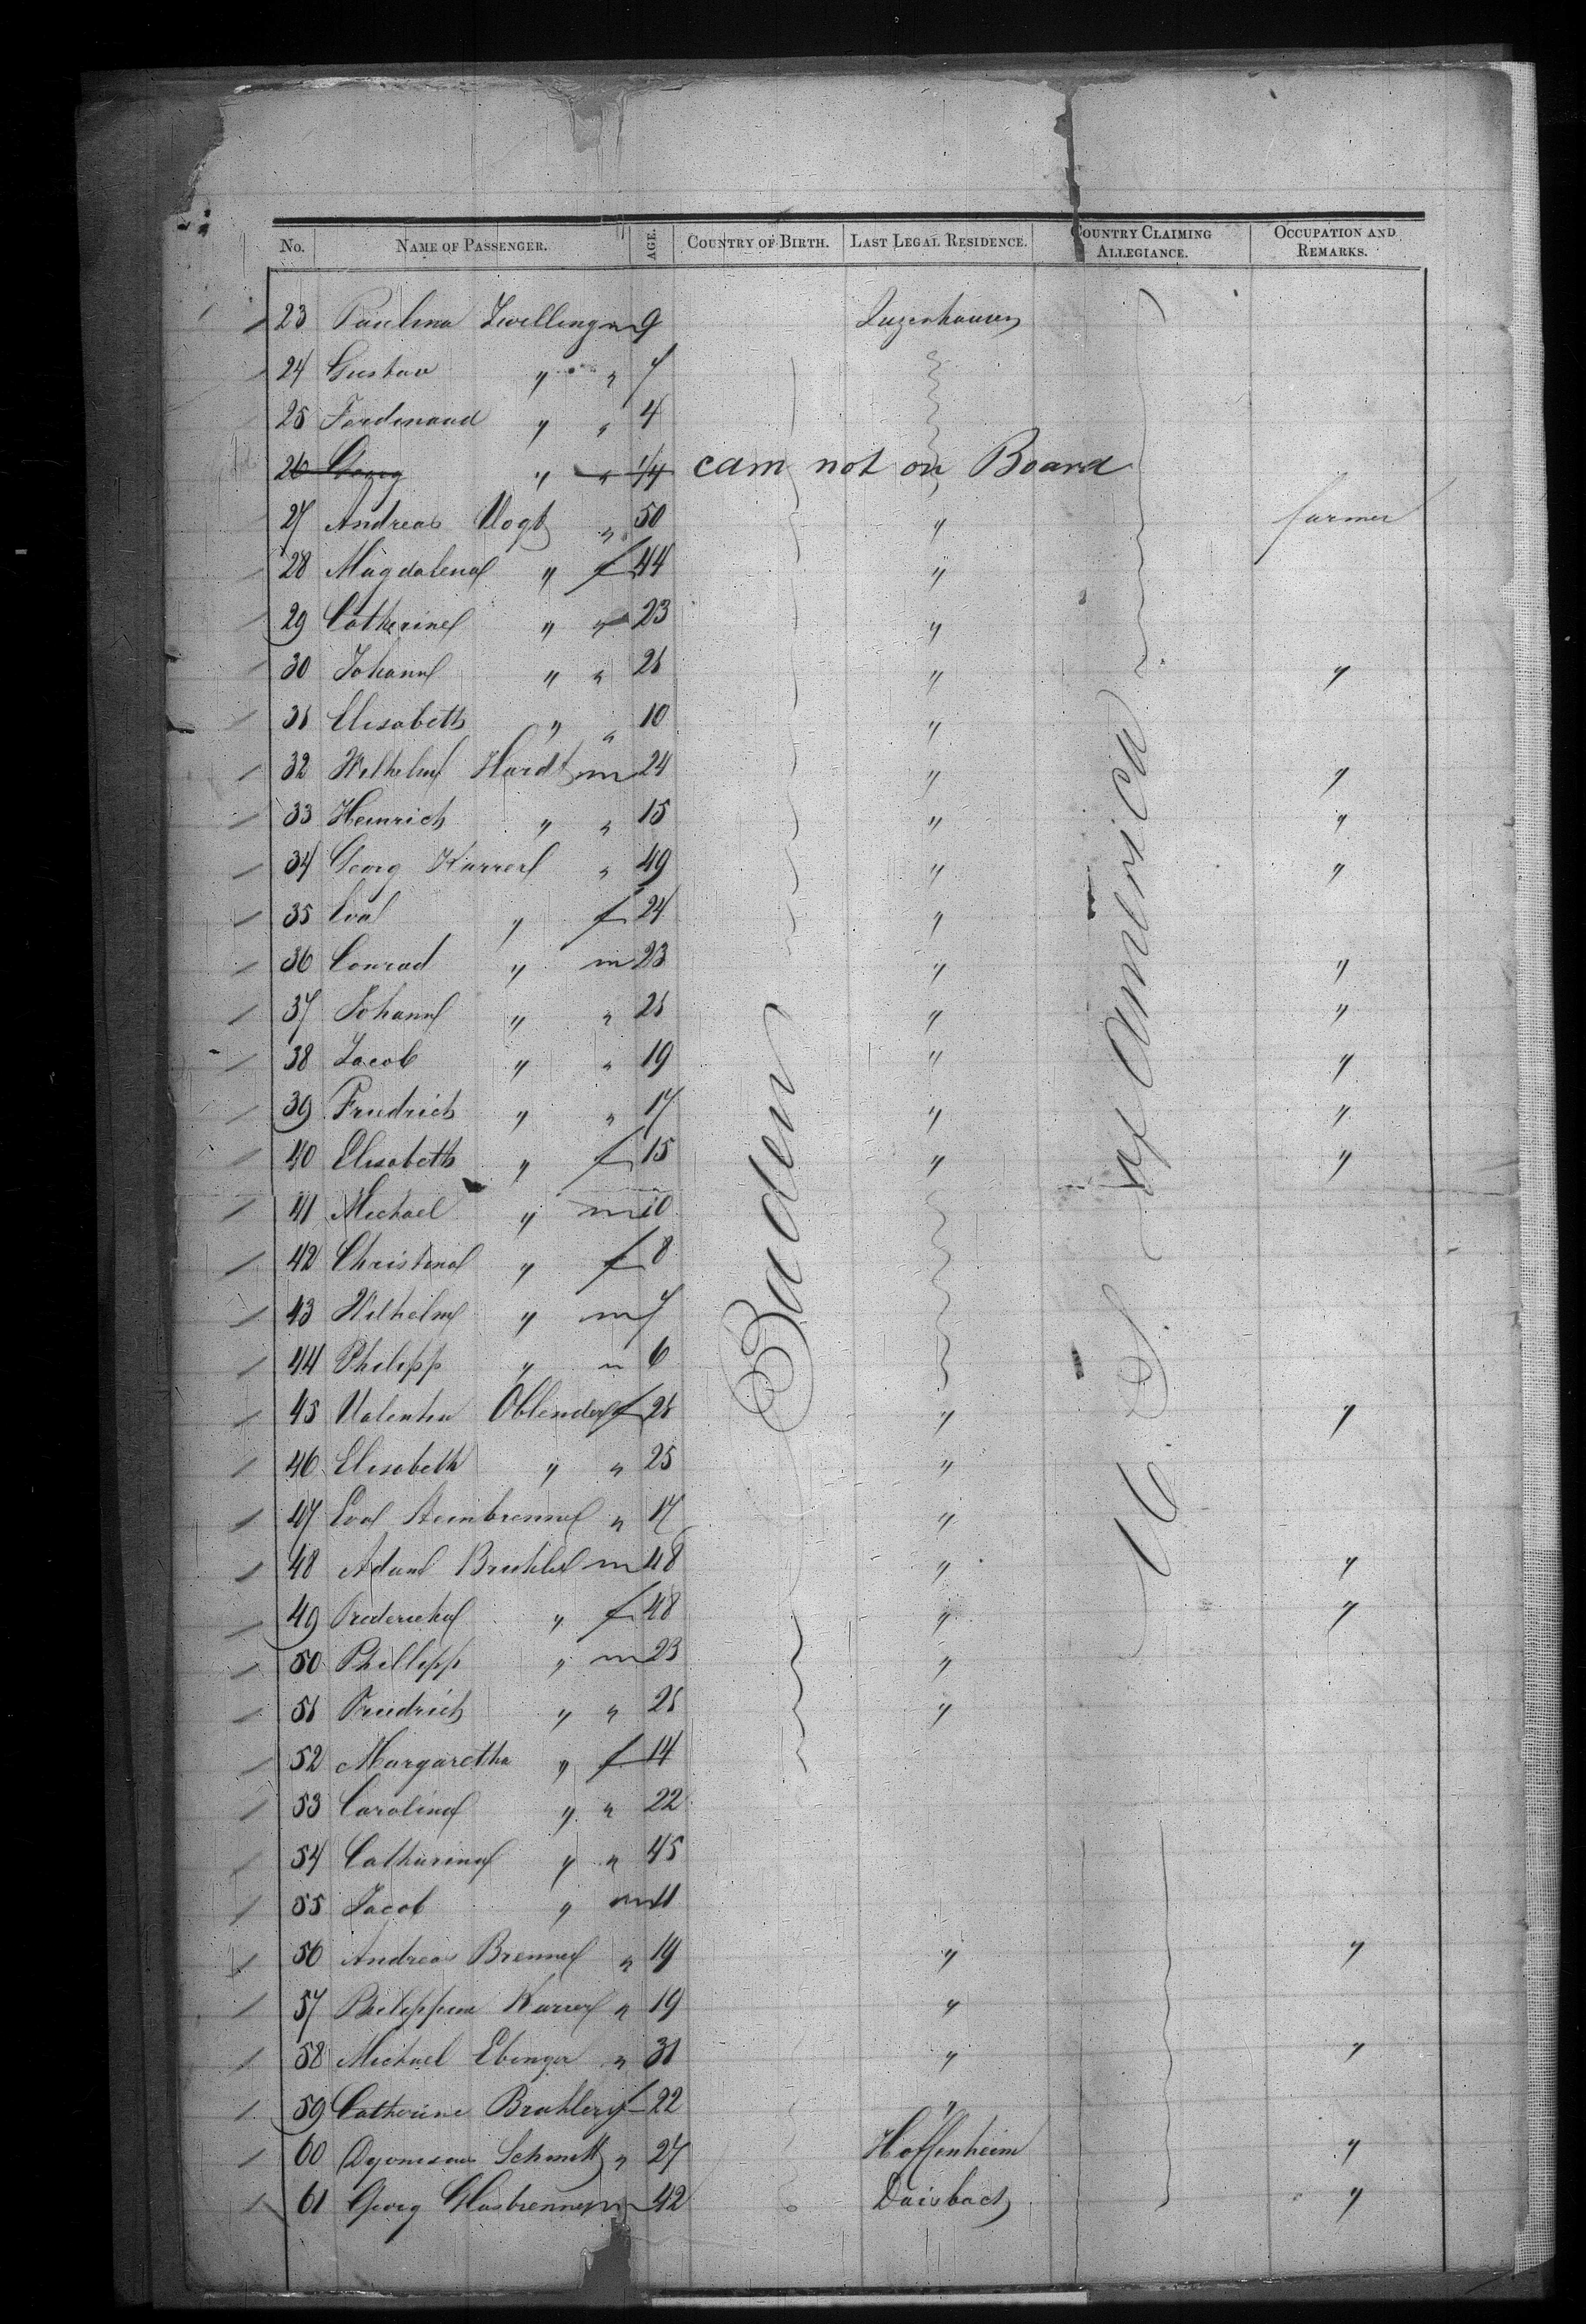 No. NAME OF PASSENGER. AGE. COUNTRY OF BIRTH. LAST LEGAL RESIDENCE. COUNTRY CLAIMING ALLEGIANCE. OCCUPATION AND REMARKS.
23 Paulina Zwelling m 9 Zuzenhausen
24 Gustav " " 7
25 Ferdinand " " 4
26 Georg " " 1/4 cam not on Board
27 Andreas Vogt " 50 " farmer
28 Magdalena " f 44 "
29 Catherine " " 23 "
30 Johann " " 21 " "
31 Elisabeth " " 10 "
32 Wilhelm Hardt m 24 " "
33 Heinrich " " 15 " "
34 Georg Karrer " 49 " "
35 Eva " f 24 "
36 Conrad " m 23 " "
37 Johann " " 21 " "
38 Jacob " " 19 " "
39 Friedrich " " 17 " "
40 Elisabeth " f 15 " "
41 Michael " m 10
42 Christina " f 8
43 Wilhelm " m 7
44 Philipp " m 6
45 Valentin Oblender f 21 " "
46 Elisabeth " " 25 "
47 Eva Steinbrenner " 17 "
48 Adam m 48 " "
49 Friedericka " f 48 " "
50 Phillipp " m 23 "
51 Friedrich " " 21 "
52 Margaretha " f 14
53 Carolina " " 22
54 Catharina " " 45
55 Jacob " m 11
56 Andreas Brenner " 19 " "
57 Philippine Karrer " 19 "
58 Michael Ebinger " 31 " "
59 Catherine f 22 "
60 Schmitt " 27 Hoffenheim "
61 Georg Glasbrenner m 42 Daisbach "
Baden
U. S. of America